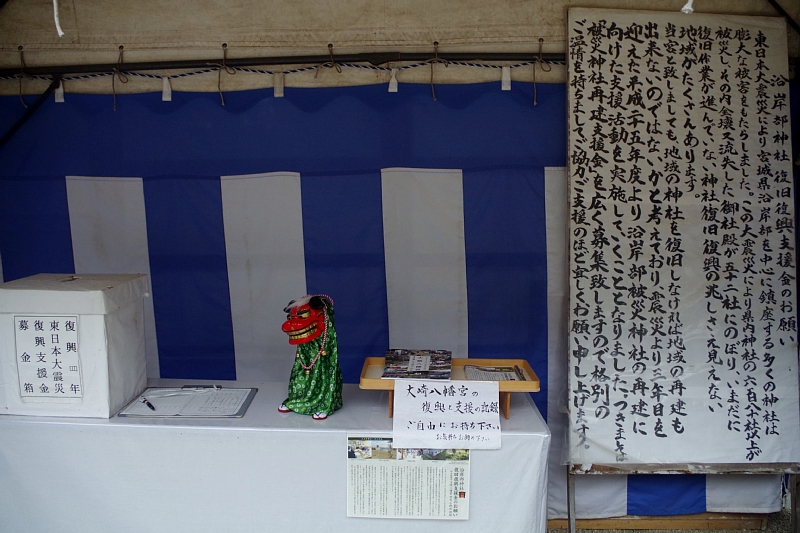 沿岸部神社 復旧復興支援金のお願い
東日本大震災により宮城県沿岸部を中心に鎮座する多くの神社は
膨大な被害をもたらしました。この大震災により県内神社の六百八十社以上が
被災し、その内全壊又流失した御社殿が五十三社にのぼり、いまだに
復旧作業が進んでいない神社復旧復興の兆しさえ見えない
地域がたくさんあります。
当宮と致しましても地域の神社を復旧しなければ地域の再建も
出来ないのではないかと考えており、震災より三年目を
迎えた平成二十五年度より沿岸部被災神社の再建に
向けた支援活動を実施していくこととなりました。つきましては
被災神社再建支援金を広く募集致しますので格別の
ご温情を持ちましてご協力ご支援のほど宜しくお願い申し上げます。
復興三年
東日本大震災
復興支援金
募金箱
大崎八幡宮の
復興と支援の記録
ご自由にお持ち下さい